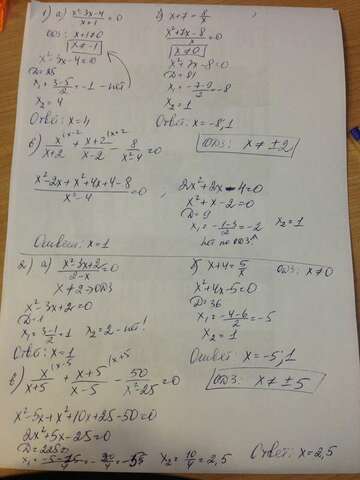 1) а) x²-3x-4 / x+1 = 0
ОДЗ: x+1≠0
x≠-1
x²-3x-4=0
D=25
x₁ = 3-5/2 = -1 - нет
x₂ = 4
Ответ: x=4
б) x+7 = 8/x
x²+7x-8 / x = 0
x≠0
x²+7x-8=0
D=81
x₁ = -7-9/2 = -8
x₂ = 1
Ответ: x=-8;1
в) x^{(x-2} / x+2 + x+2^{(x+2} / x-2 - 8 / x²-4 = 0
ОДЗ: x≠±2
x²-2x+x²+4x+4-8 / x²-4 = 0 ;
2x²+2x-4=0
x²+x-2=0
D=9
x₁ = -1-3/2 = -2 x₂=1
нет по ОДЗ
Ответ: x=1
2. а) x²-3x+2 / 2-x = 0
x≠2 → ОДЗ
x²-3x+2=0
D=1
x₁ = 3-1/2 = 1 x₂=2 - нет!
Ответ: x=1
б) x+4 = 5/x ОДЗ: x≠0
x²+4x-5=0
D=36
x₁ = -4-6/2 = -5
x₂ = 1
Ответ: x=-5;1
в) x^{(x-5} / x+5 + x+5^{(x+5} / x-5 - 50 / x²-25 = 0
ОДЗ: x≠±5
x²-5x+x²+10x+25-50=0
2x²+5x-25=0
D=225
x₁ = -5-15/4 = -20/4 = -5 x₂ = 10/4 = 2,5 Ответ: x=2,5